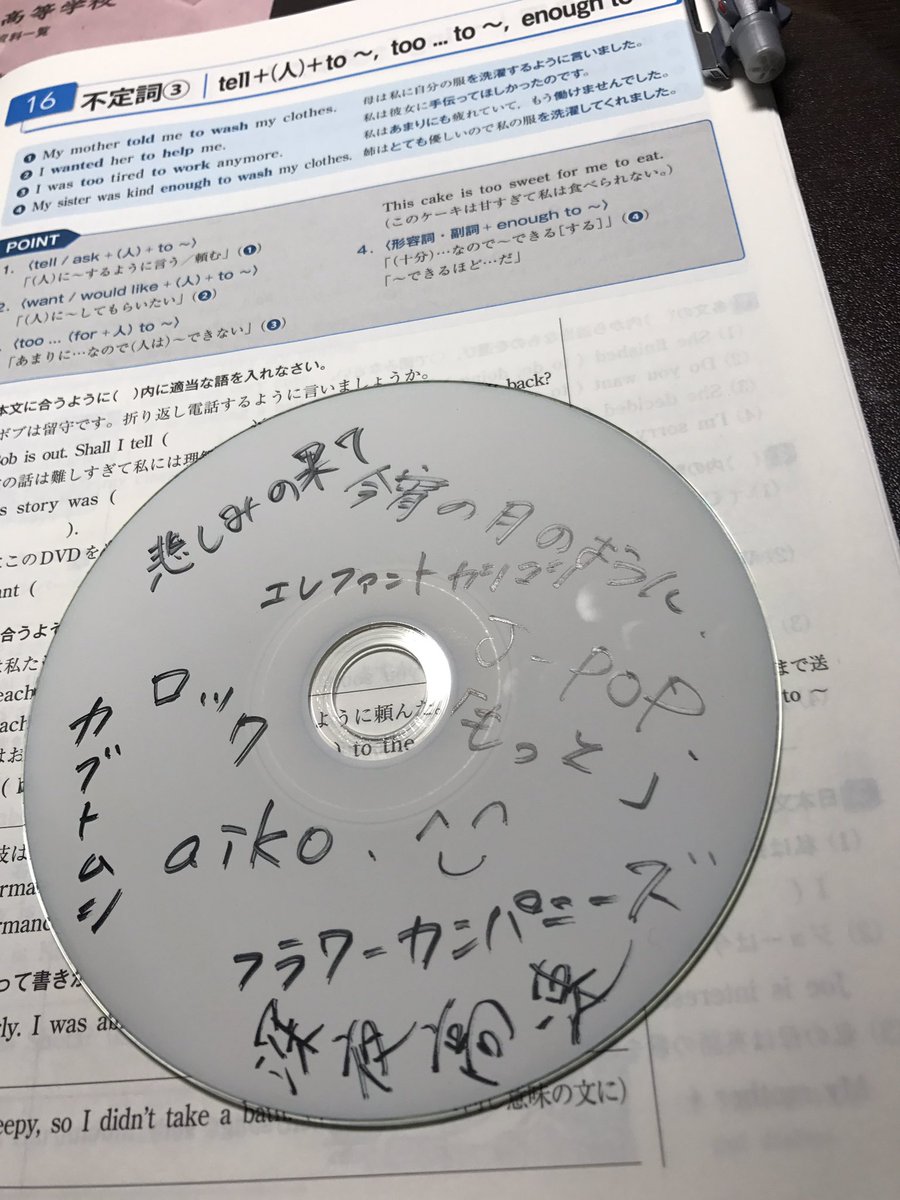 高等学校
資料一覧
16 不定詞③ tell+(人)+to ～, too ... to ～, enough to
❶ My mother told me to wash my clothes. 母は私に自分の服を洗濯するように言いました。
❷ I wanted her to help me. 私は彼女に手伝ってほしかったのです。
❸ I was too tired to work anymore. 私はあまりにも疲れていて，もう働けませんでした。
❹ My sister was kind enough to wash my clothes. 姉はとても優しいので私の服を洗濯してくれました。
POINT
1. 〈tell / ask +(人)+ to ～〉
「(人)に～するように言う／頼む」(❶)
2. 〈want / would like +(人)+ to ～〉
「(人)に～してもらいたい」(❷)
〈too ... (for +人) to ～〉
「あまりに…なので(人は)～できない」(❸)
This cake is too sweet for me to eat.
(このケーキは甘すぎて私は食べられない。)
4. 〈形容詞・副詞 + enough to ～〉
「(十分)…なので～できる[する]」(❹)
「～できるほど…だ」
本文に合うように( )内に適当な語を入れなさい。
ボブは留守です。折り返し電話するように言いましょうか。
Bob is out. Shall I tell ( back?
の話は難しすぎて私には理
s story was (
).
はこのDVDを
ant (
合うよ
は私た まで送
each to ～
ように頼んだ
) to the
悲しみの果て
今宵の月のように、
エレファントカシマシ
J-POP、
ロック
「もっと」
カブトムシ
aiko.
フラワーカンパニーズ
深夜高速
って書き
rly. I was a
eepy, so I didn't take a bath. 意味の文に)